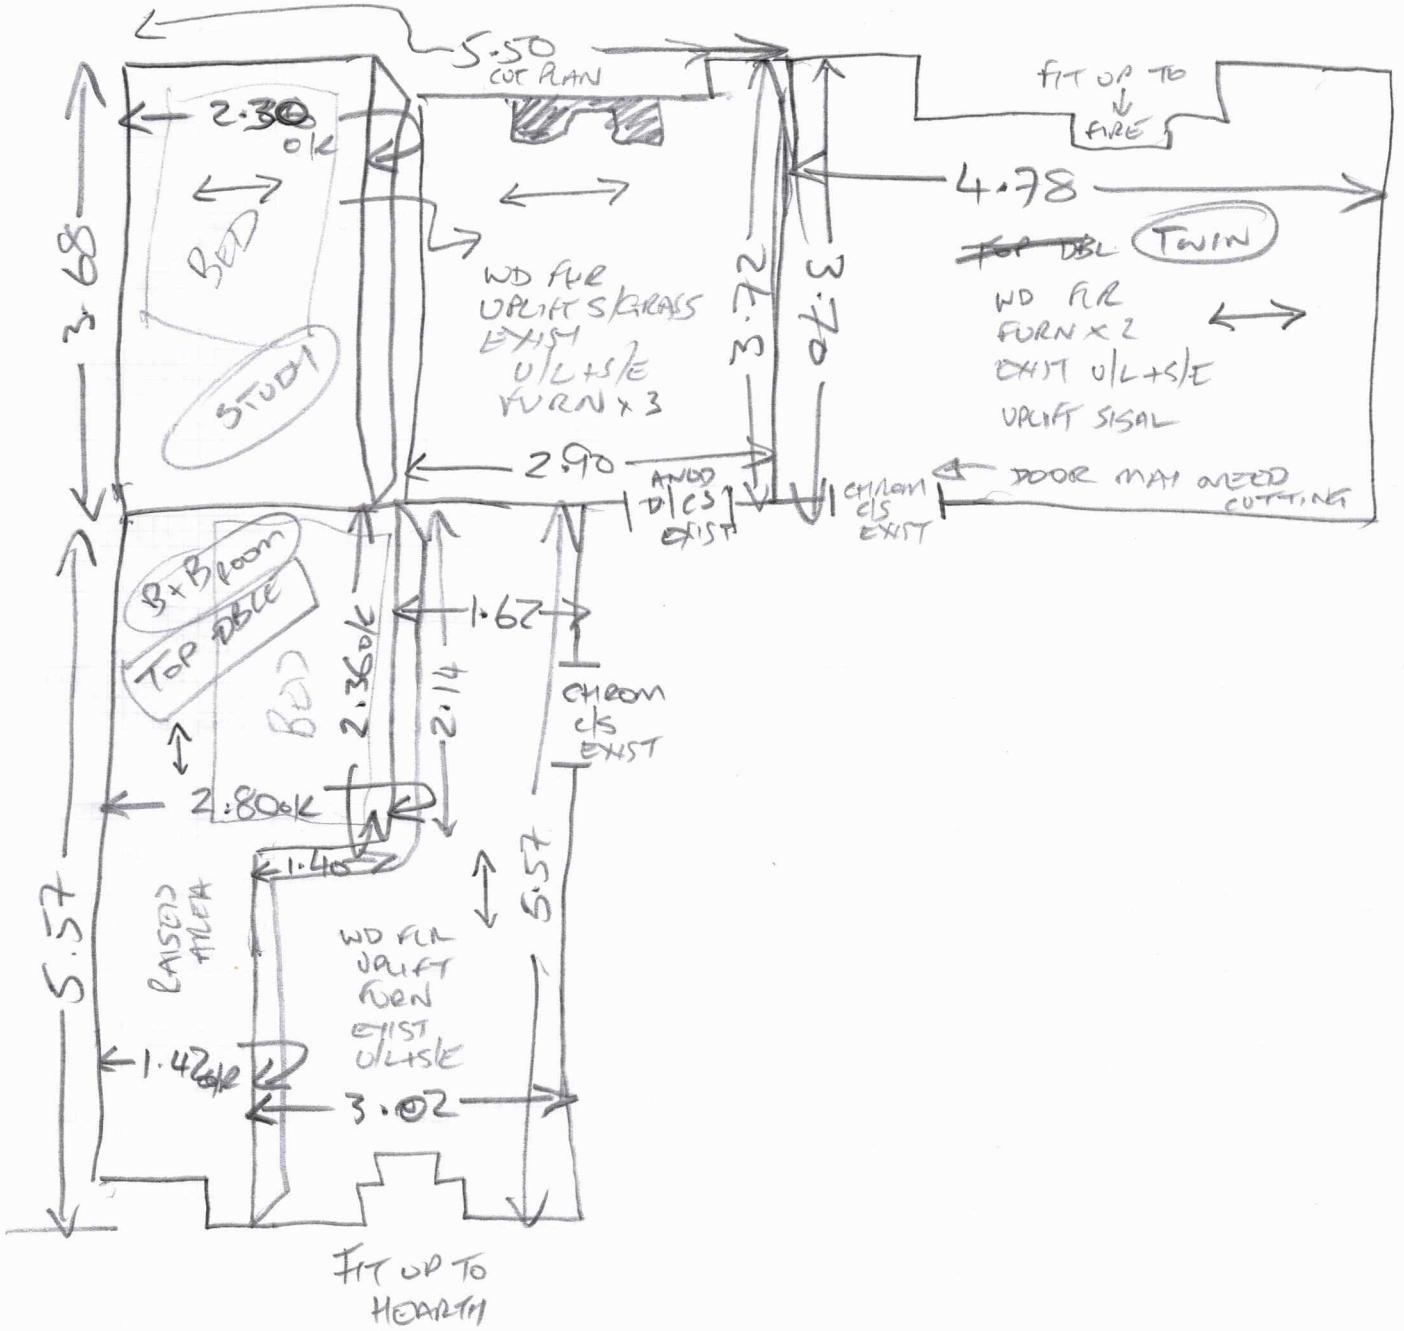 5.50
CUT PLAN
FIT UP TO
FIRE
2.30
O/K
4.78
TOP DBL
TWIN
3.68
BED
STUDY
WD FLR
UPLIFT S/GRASS
EXIST
U/L+S/E
FURN x 3
3.72
3.70
WD FLR
FURN x 2
EXIST U/L+S/E
UPLIFT SISAL
2.90
ANOD
D/CS
EXIST
CHROM
C/S
EXIST
DOOR MAY NEED
CUTTING
B+B ROOM
TOP DBLE
BED
2.36 OK
2.14
1.62
CHROM
C/S
EXIST
2.80 OK
1.40
5.57
5.57
RAISED
AREA
WD FLR
UPLIFT
FURN
EXIST
U/L+S/E
1.42 OK
3.02
FIT UP TO
HEARTH